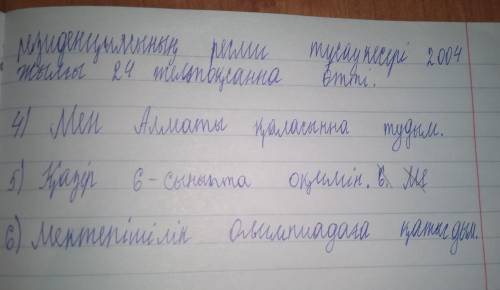 резиденциясының ресми тұсаукесері 2004
жылғы 24 желтоқсанна өтті.
4) Мен Алматы қаласынна тудым.
5) Қазір 6-сыныпта оқимін.
6) Мектепішілік олимпиадаға қатысдым.